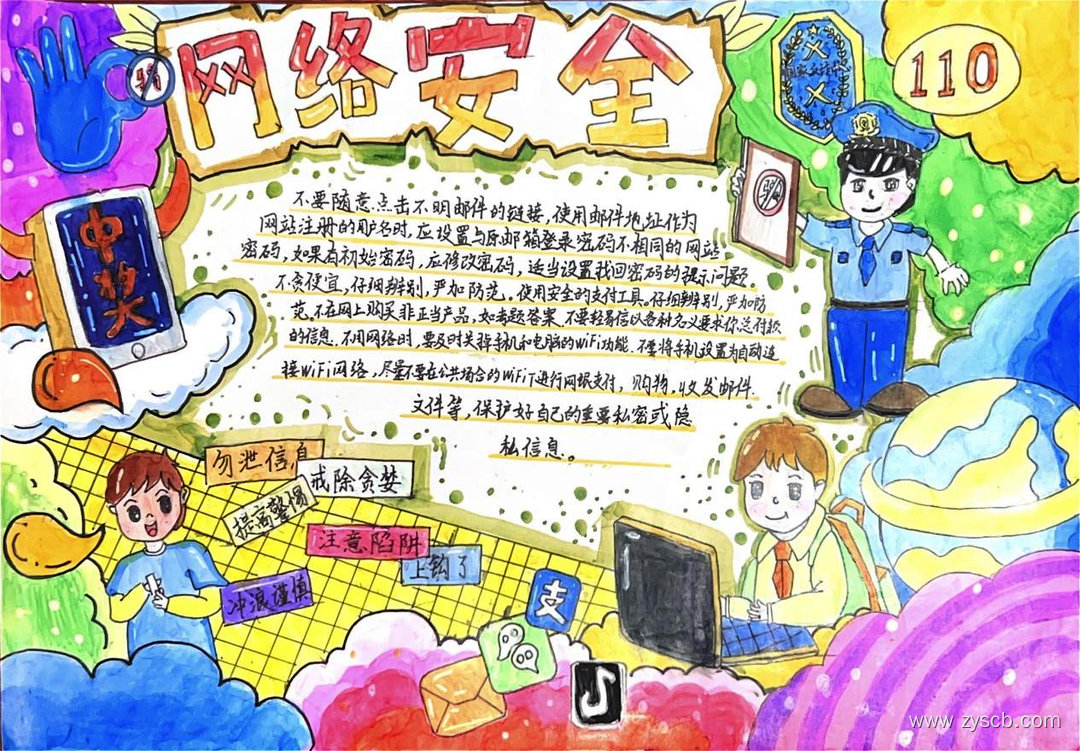 网络安全
110
中奖
不要随意点击不明邮件的链接,使用邮件地址作为
网站注册的用户名时,应设置与原邮箱登录密码不相同的网站
密码,如果有初始密码,应修改密码,适当设置找回密码的提示问题。
不贪便宜,仔细辨别,严加防范。使用安全的支付工具。仔细辨别,严加防
范.不在网上购买非正当产品,如考题答案.不要轻易信以各种名义要求你
的信息.不用网络时,要及时关掉手机和电脑的WiFi功能.不要将手机设置为自动连
接WiFi网络,尽量不要在公共场合的WiFi下进行网银支付,购物,收发邮件.
文件等,保护好自己的重要私密或隐
私信息。
勿泄信息
戒除贪婪
提高警惕
注意陷阱
上钩了
冲浪谨慎
支
www.zyscb.com